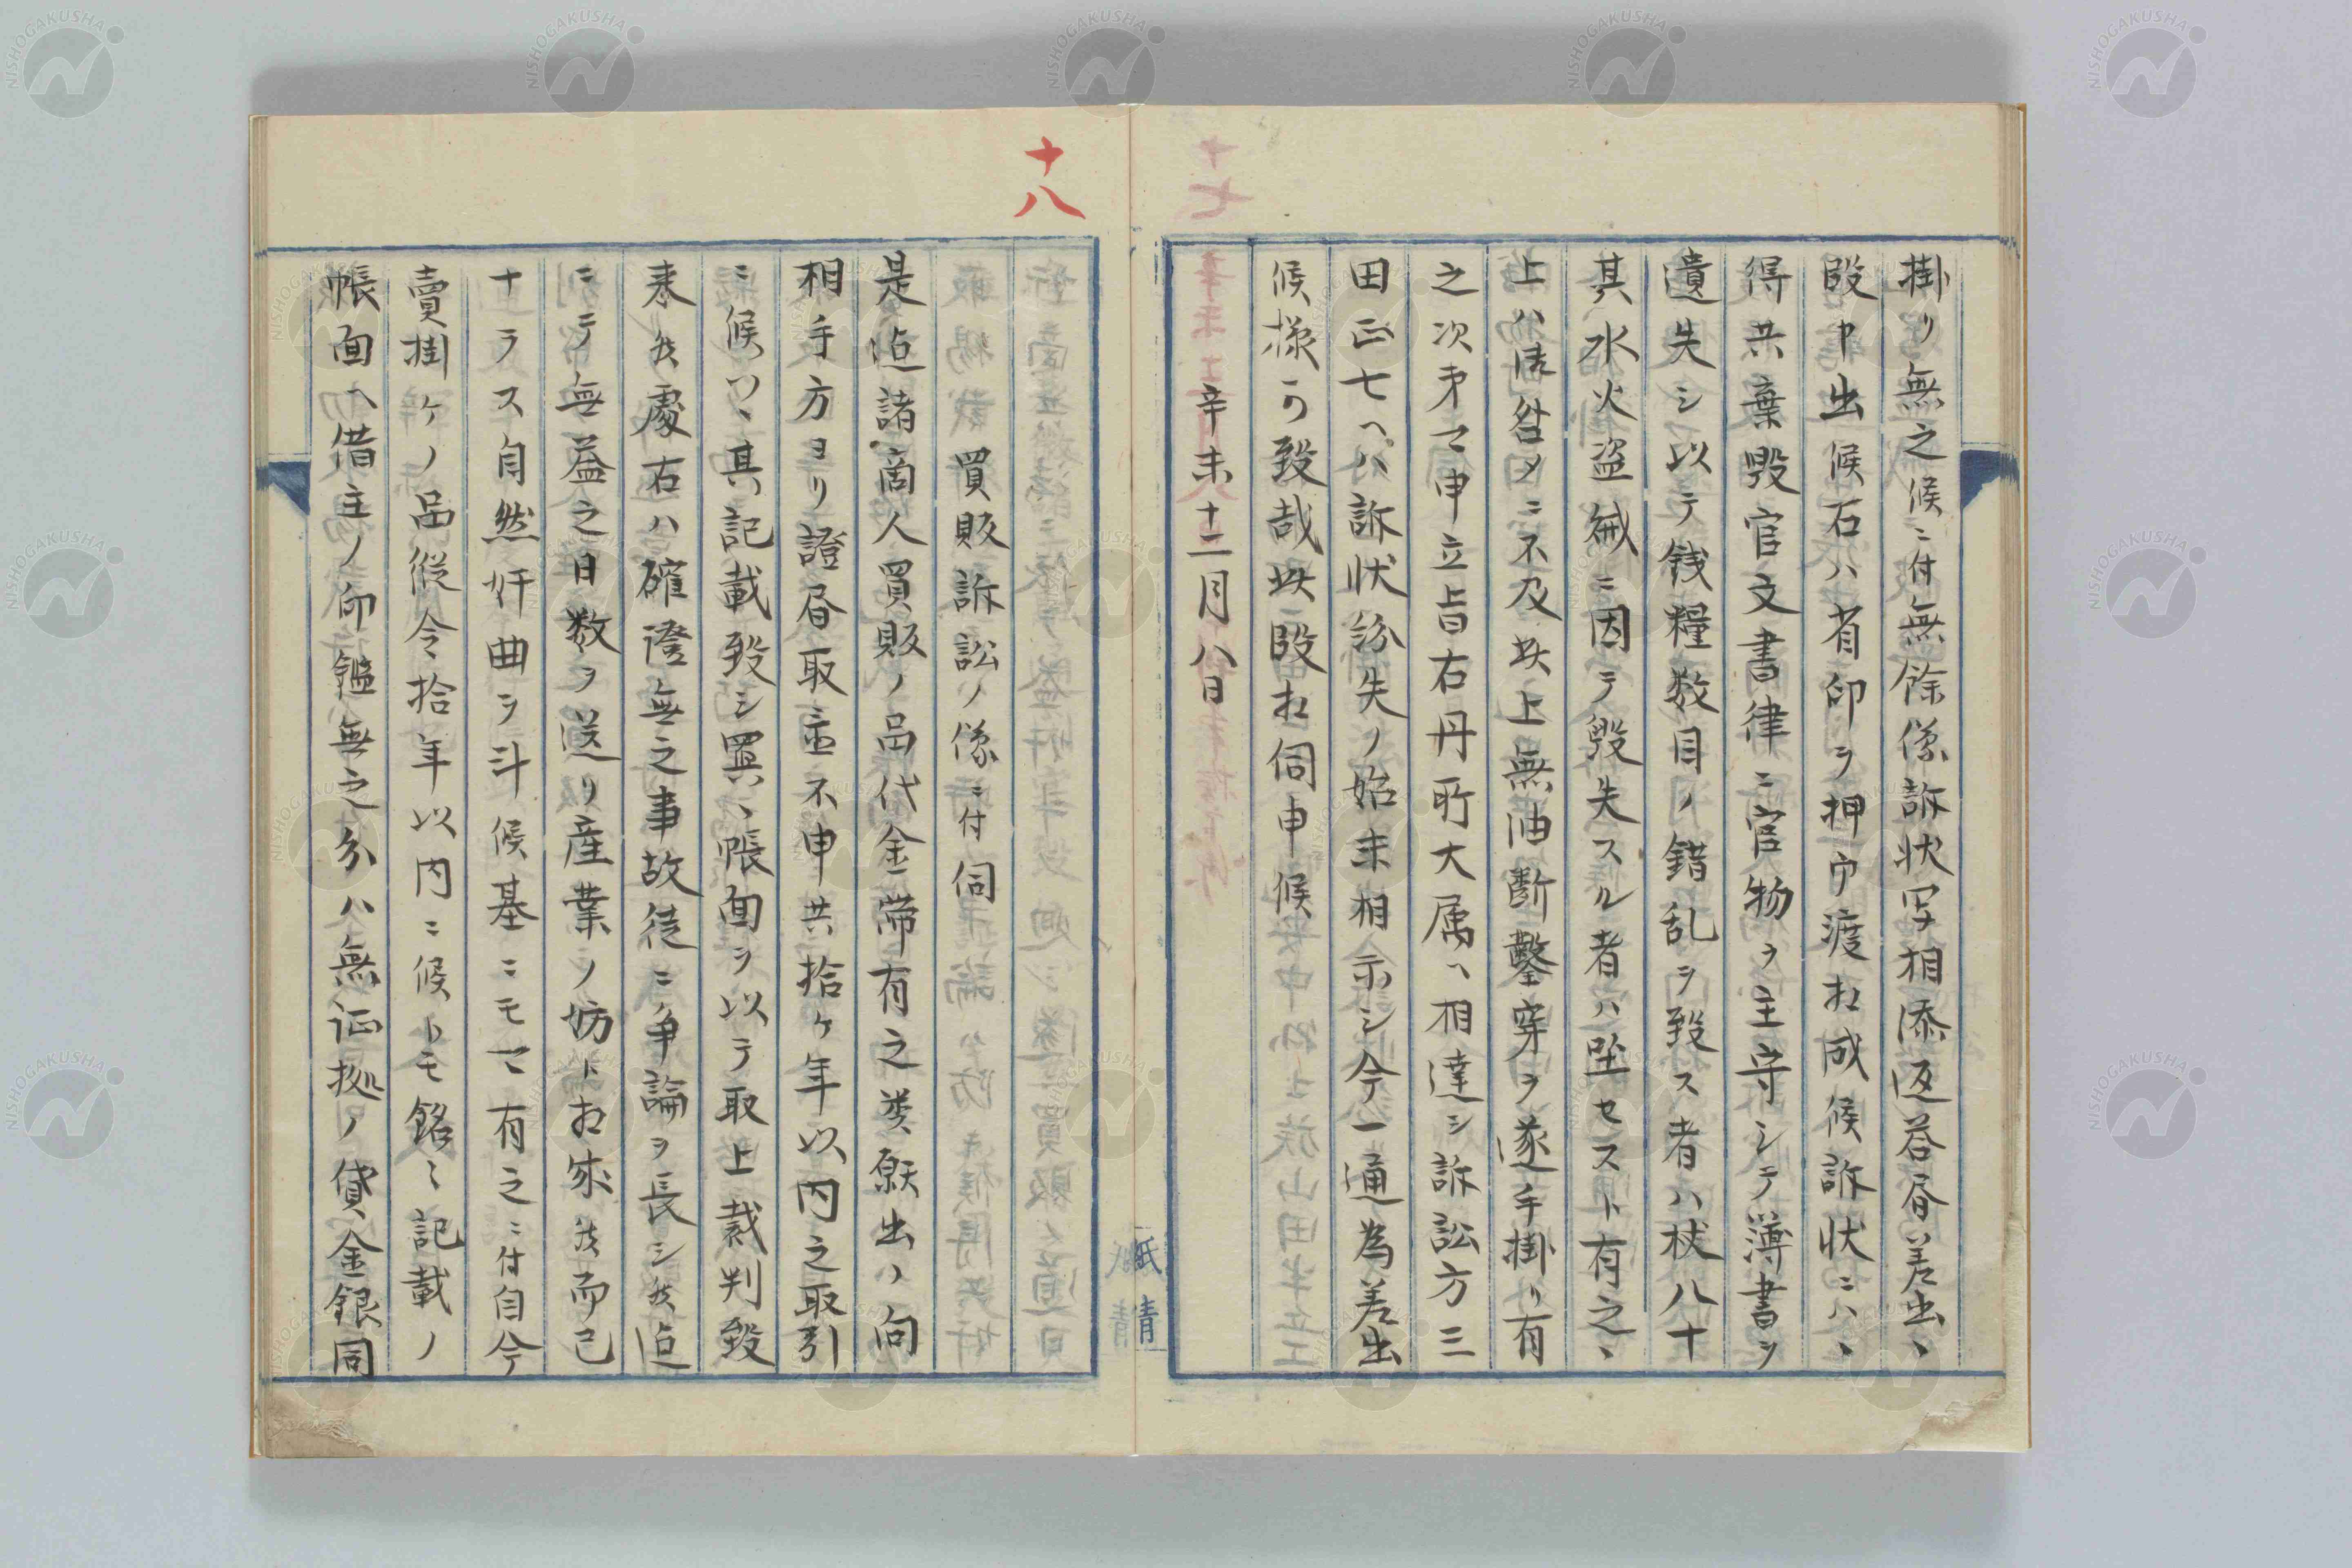 掛リ無之候ニ付無餘儀訴状写相添返答書差出、
段申出候右ハ省印ヲ押ウ渡相成候訴状ニハ、
得共棄毀官文書律ニ官物ヲ主守シテ簿書ヲ
遺失シ以テ銭糧数目ノ錯乱ヲ致ス者ハ杖八十
其水火盗賊ニ因テ毀失スル者ハ坐セスト有之、
上ハ浅咎メニ不及此上無油断鑿穿ヲ遂手掛リ有
之次第可申立旨右丹所大属ヘ相達シ訴訟方三
田正七ヘハ訴状紛失ノ始末相示シ今一通為差出
候様可致哉此段相伺申候
辛未十二月八日
十八
買販訴訟ノ儀ニ付伺
是迄諸商人買販ノ品代金滞有之類願出ノ向
相手方ヨリ證書取置不申共拾ケ年以内之取引
ニ候ハヽ其記載致シ置、帳面ヲ以テ取上裁判致
来候處右ハ確證無之事故徒ニ争論ヲ長シ候迄
ニテ無益之日数ヲ送リ産業ノ妨ト相成候而已
ナラス自然奸曲ヲ斗候基ニモ可有之ニ付自今
賣掛ケノ品縦令拾年以内ニ候トモ銘々記載ノ
帳面ヘ借主ノ印鑑無之分ハ無証拠ノ貸金銀同